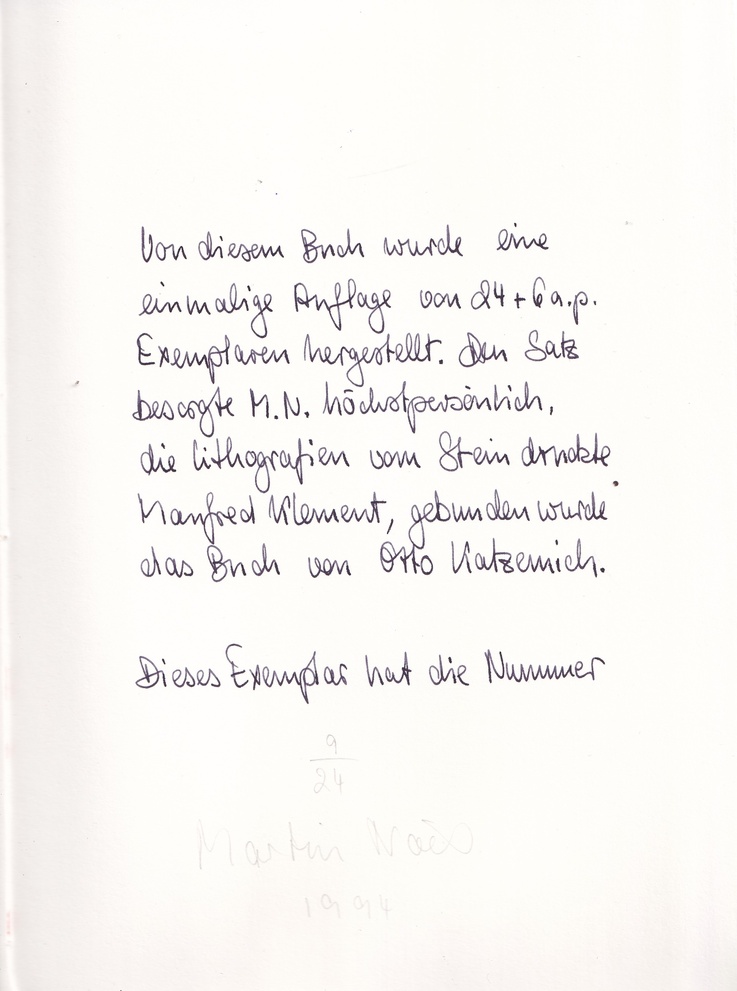 Von diesem Buch wurde eine
einmalige Auflage von 24 + 6 a.p.
Exemplaren hergestellt. Den Satz
besorgte M.N. höchstpersönlich,
die Lithografien vom Stein druckte
Manfred Klement, gebunden wurde
das Buch von Otto Katzemich.
Dieses Exemplar hat die Nummer
9
24
Martin
1994